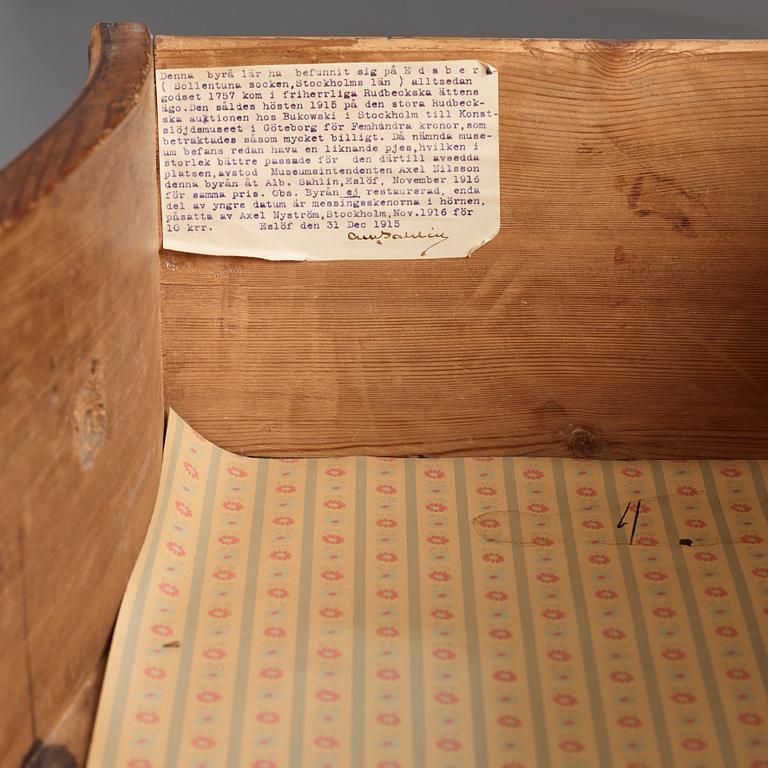 Denna byrå lär ha befunnit sig på E d s b e r g
( Sollentuna socken,Stockholms län ) alltsedan
godset 1757 kom i friherrliga Rudbeckska ättens
ägo.Den såldes hösten 1915 på den stora Rudbeck-
ska auktionen hos Bukowski i Stockholm till Konst-
slöjdsmuseet i Göteborg för Femhundra kronor,som
betraktades såsom mycket billigt. Då nämnda muse-
um befans redan hava en liknande pjes,hvilken i
storlek bättre passade för den därtill avsedda
platsen,avstod Museumsintendenten Axel Nilsson
denna byrån åt Alb. Sahlin,Eslöf, November 1916
för samma pris. Obs. Byrån ej restaurerad, enda
del av yngre datum är messingsskenorna i hörnen,
påsatta av Axel Nyström,Stockholm,Nov.1916 för
10 krr. Eslöf den 31 Dec 1915
Sahlin